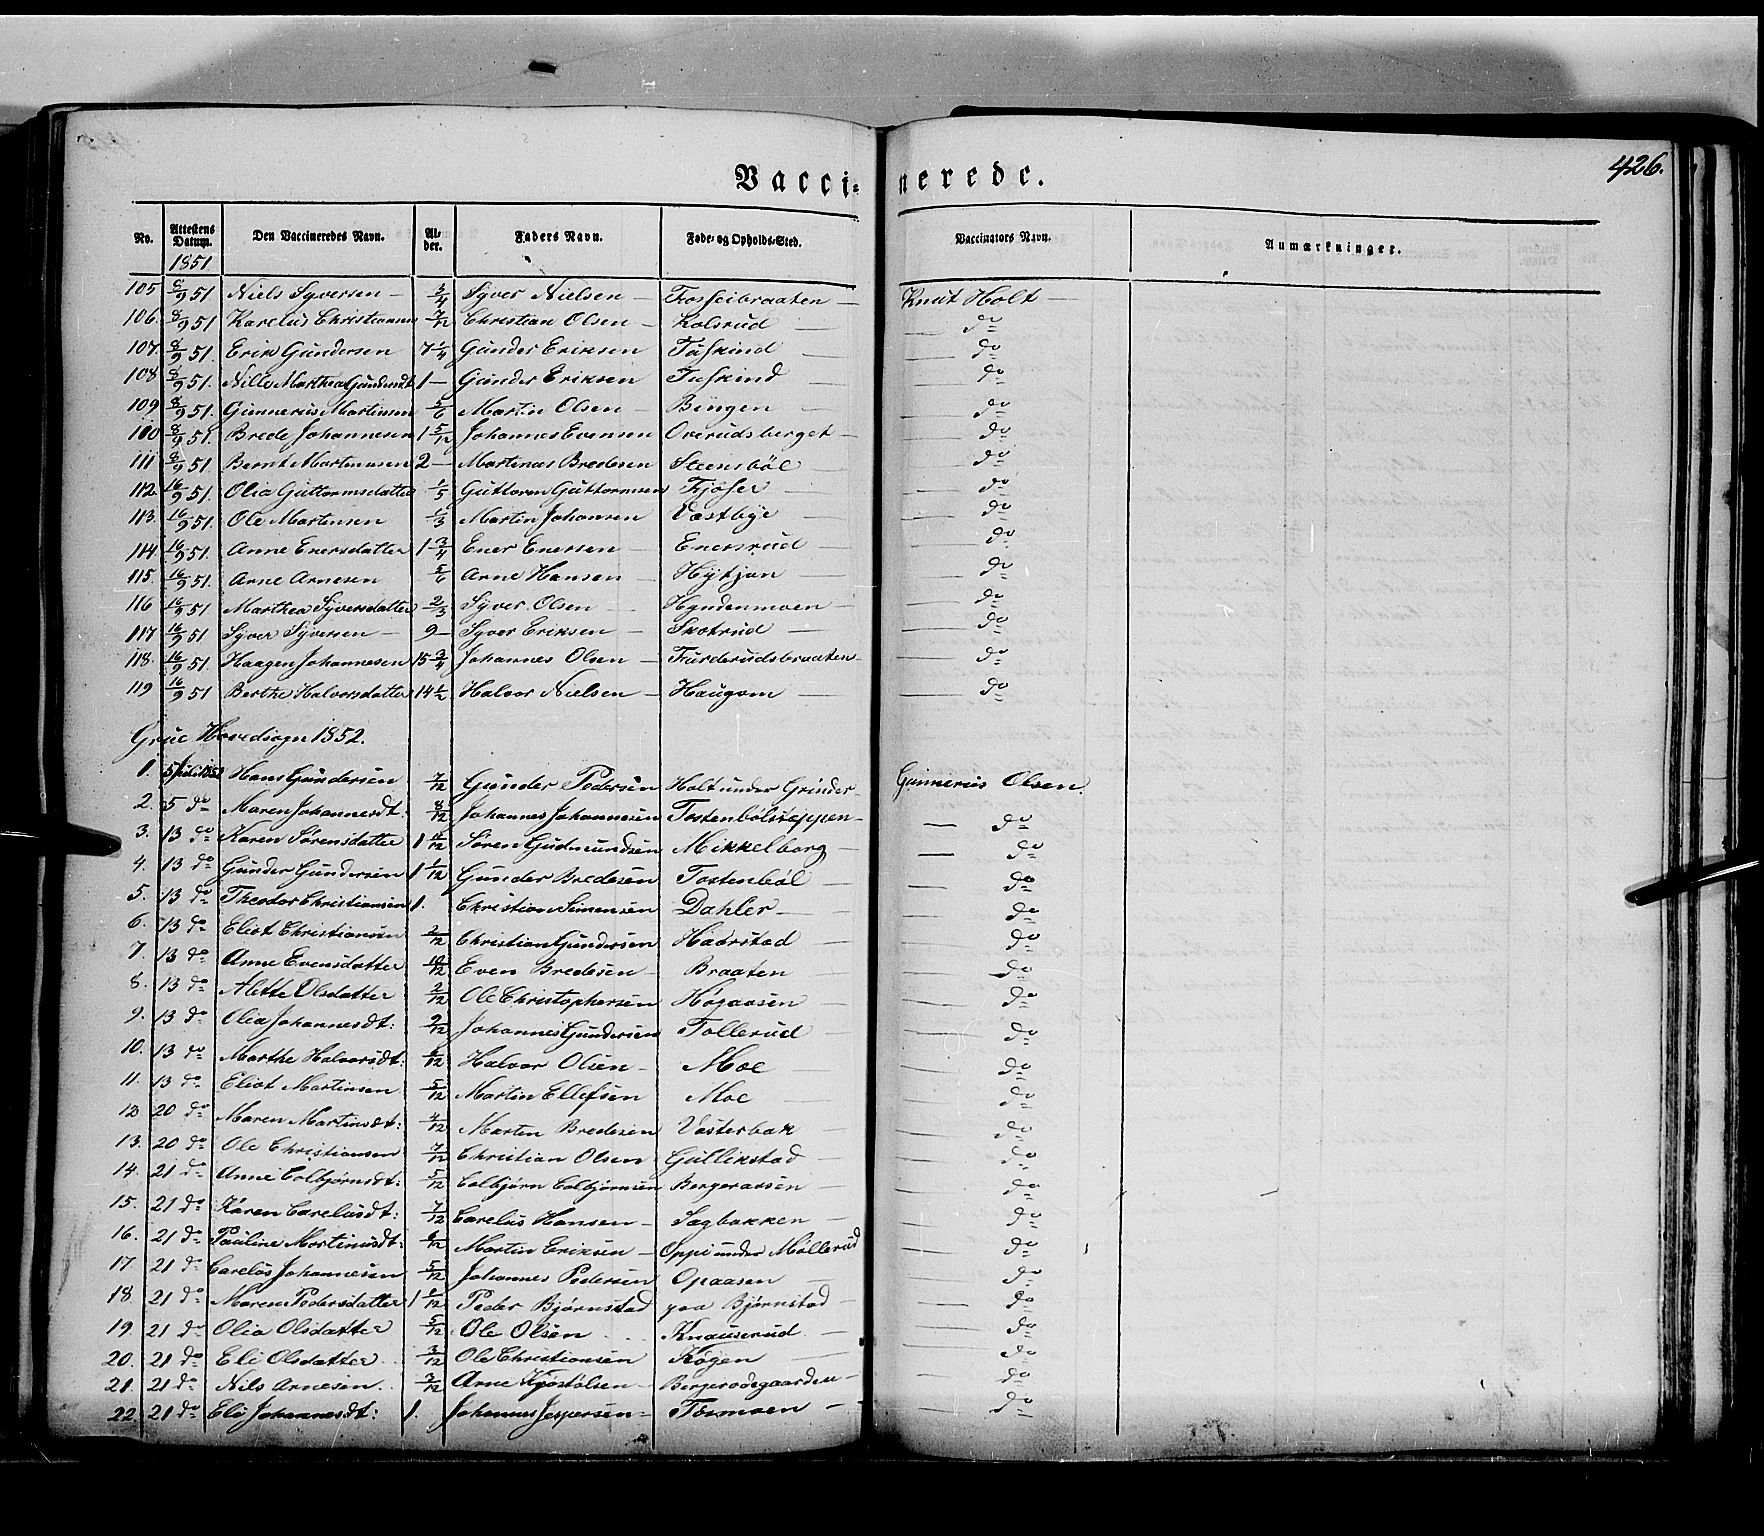 426.
Vacci- nerede.
No. Attestens Datum. Den Vaccineredes Navn. Al- der. Faders Navn. Føde- og Opholds-Sted. Vaccinators Navn. Anmærkninger.
1851
105 6/9 51 Niels Syversen — 3/4 Syver Nielsen — Fosseibraaten — Knut Holt —
106. 8/9 51 Karelus Christiansen 7/12 Christian Olsen — Kolsrud — — do
107. 8/9 51. Erik Gundersen 7 1/4 Gunder Eriksen Tuskind — — do
108 8/9 51. Nille Marthea Gundersdt 1 — Gunder Eriksen Tuskind — — do
109 8/9 51. Gunnerius Martinsen 5/6 Martin Olsen — Bingen — — do
110 8/9 51. Brede Johannesen 1 5/12 Johannes Evensen Overudsberget — — do
111 8/9 51. Bernt Martinusen 2 — Martinus Bredesen Steensböl — — do
112. 16/9 51. Olia Guttormsdatter 1/5 Guttorm Guttormsen Fjøser — — do
113. 16/9 51. Ole Martinsen 1/3 Martin Johansen Vestbye — — do
114. 16/9 51. Anne Enersdatter 1 3/4 Ener Enersen — Enersrud — — do
115. 16/9 51. Arne Arnesen 5/6 Arne Hansen — Hytjan — — do
116 16/9 51 Marthea Syversdatter 2/3 Syver Olsen — Hyndenmoen — — do
117 16/9 51 Syver Syversen — 9 — Syver Eriksen — Skotrud — — do
118. 16/9 51. Haagen Johannesen 15 3/4 Johannes Olsen — Furderudsbraaten — — do
119 16/9 51 Berthe Halvorsdatter 14 1/2 Halvor Nielsen — Haugom — — do
Grue Hovedsogn 1852.
1. 5 Juli 1852 Hans Gundersen 7/12 Gunder Pedersen Holt under Grinder — Gunnerius Olsen.
2. 5 do Maren Johannesdt: 8/12 Johannes Johannesen Tostenbölstoppen — — do
3. 13 do Karen Sørensdatter 1 /12 Søren Gudmundsen Mikkelborg — — do
4. 13 do Gunder Gundersen 1 1/12 Gunder Bredesen Tostenböl — — do
5. 13 do Theodor Christiansen 1. Christian Simensen Dahler — — do
6. 13 do Eliot Christiansen 2/12 Christian Gundersen Haarstad — — do
7. 13 do Anne Evensdatter 10/12 Even Bredesen — Braaten — — do
8. 13 do Alette Olsdatter 2/12 Ole Christophersen Høgaasen — — do
9. 13 do Olia Johannesdt: 9/12 Johannes Gundersen Tollerud — — do
10. 13 do Marthe Halvorsdt: /12 Halvor Olsen — Moe — — do
11. 13 do Eliot Martinsen 5/12 Martin Ellefsen Moe — — do
12 20 do Maren Martinsdt: /12 Martin Bredesen Vesterbak — — do
13. 20 do Ole Christiansen 7/12 Christian Olsen Gullikstad — — do
14. 21 do Anne Colbjørnsdt: 5/12 Colbjørn Colbjørnsen Bergeraasen — — do
15. 21 do Karen Carelusdt: 7/12 Carelus Hansen — Sagbakken — — do
16. 21 do Pauline Martinusdt: /12 Martin Eriksen — Oppi under Möllerud — do
17. 21 do Carelus Johannesen 5/12 Johannes Pedersen Opaasen — — do
18. 21 do Maren Pedersdatter 1 /12 Peder Bjørnstad paa Bjørnstad — — do
19. 21 do Olia Olsdatter 5/12 Ole Olsen Knauserud — — do
20. 21 do Eli Olsdatter 3/12 Ole Christiansen Kögen — — do
21. 21 do Nils Arnesen 3/12 Arne Kjøstolsen — Bergerodegaarden — — do
22 21 do Eli Johannesdt: 1. Johannes Jespersen — Tosmoen — — do